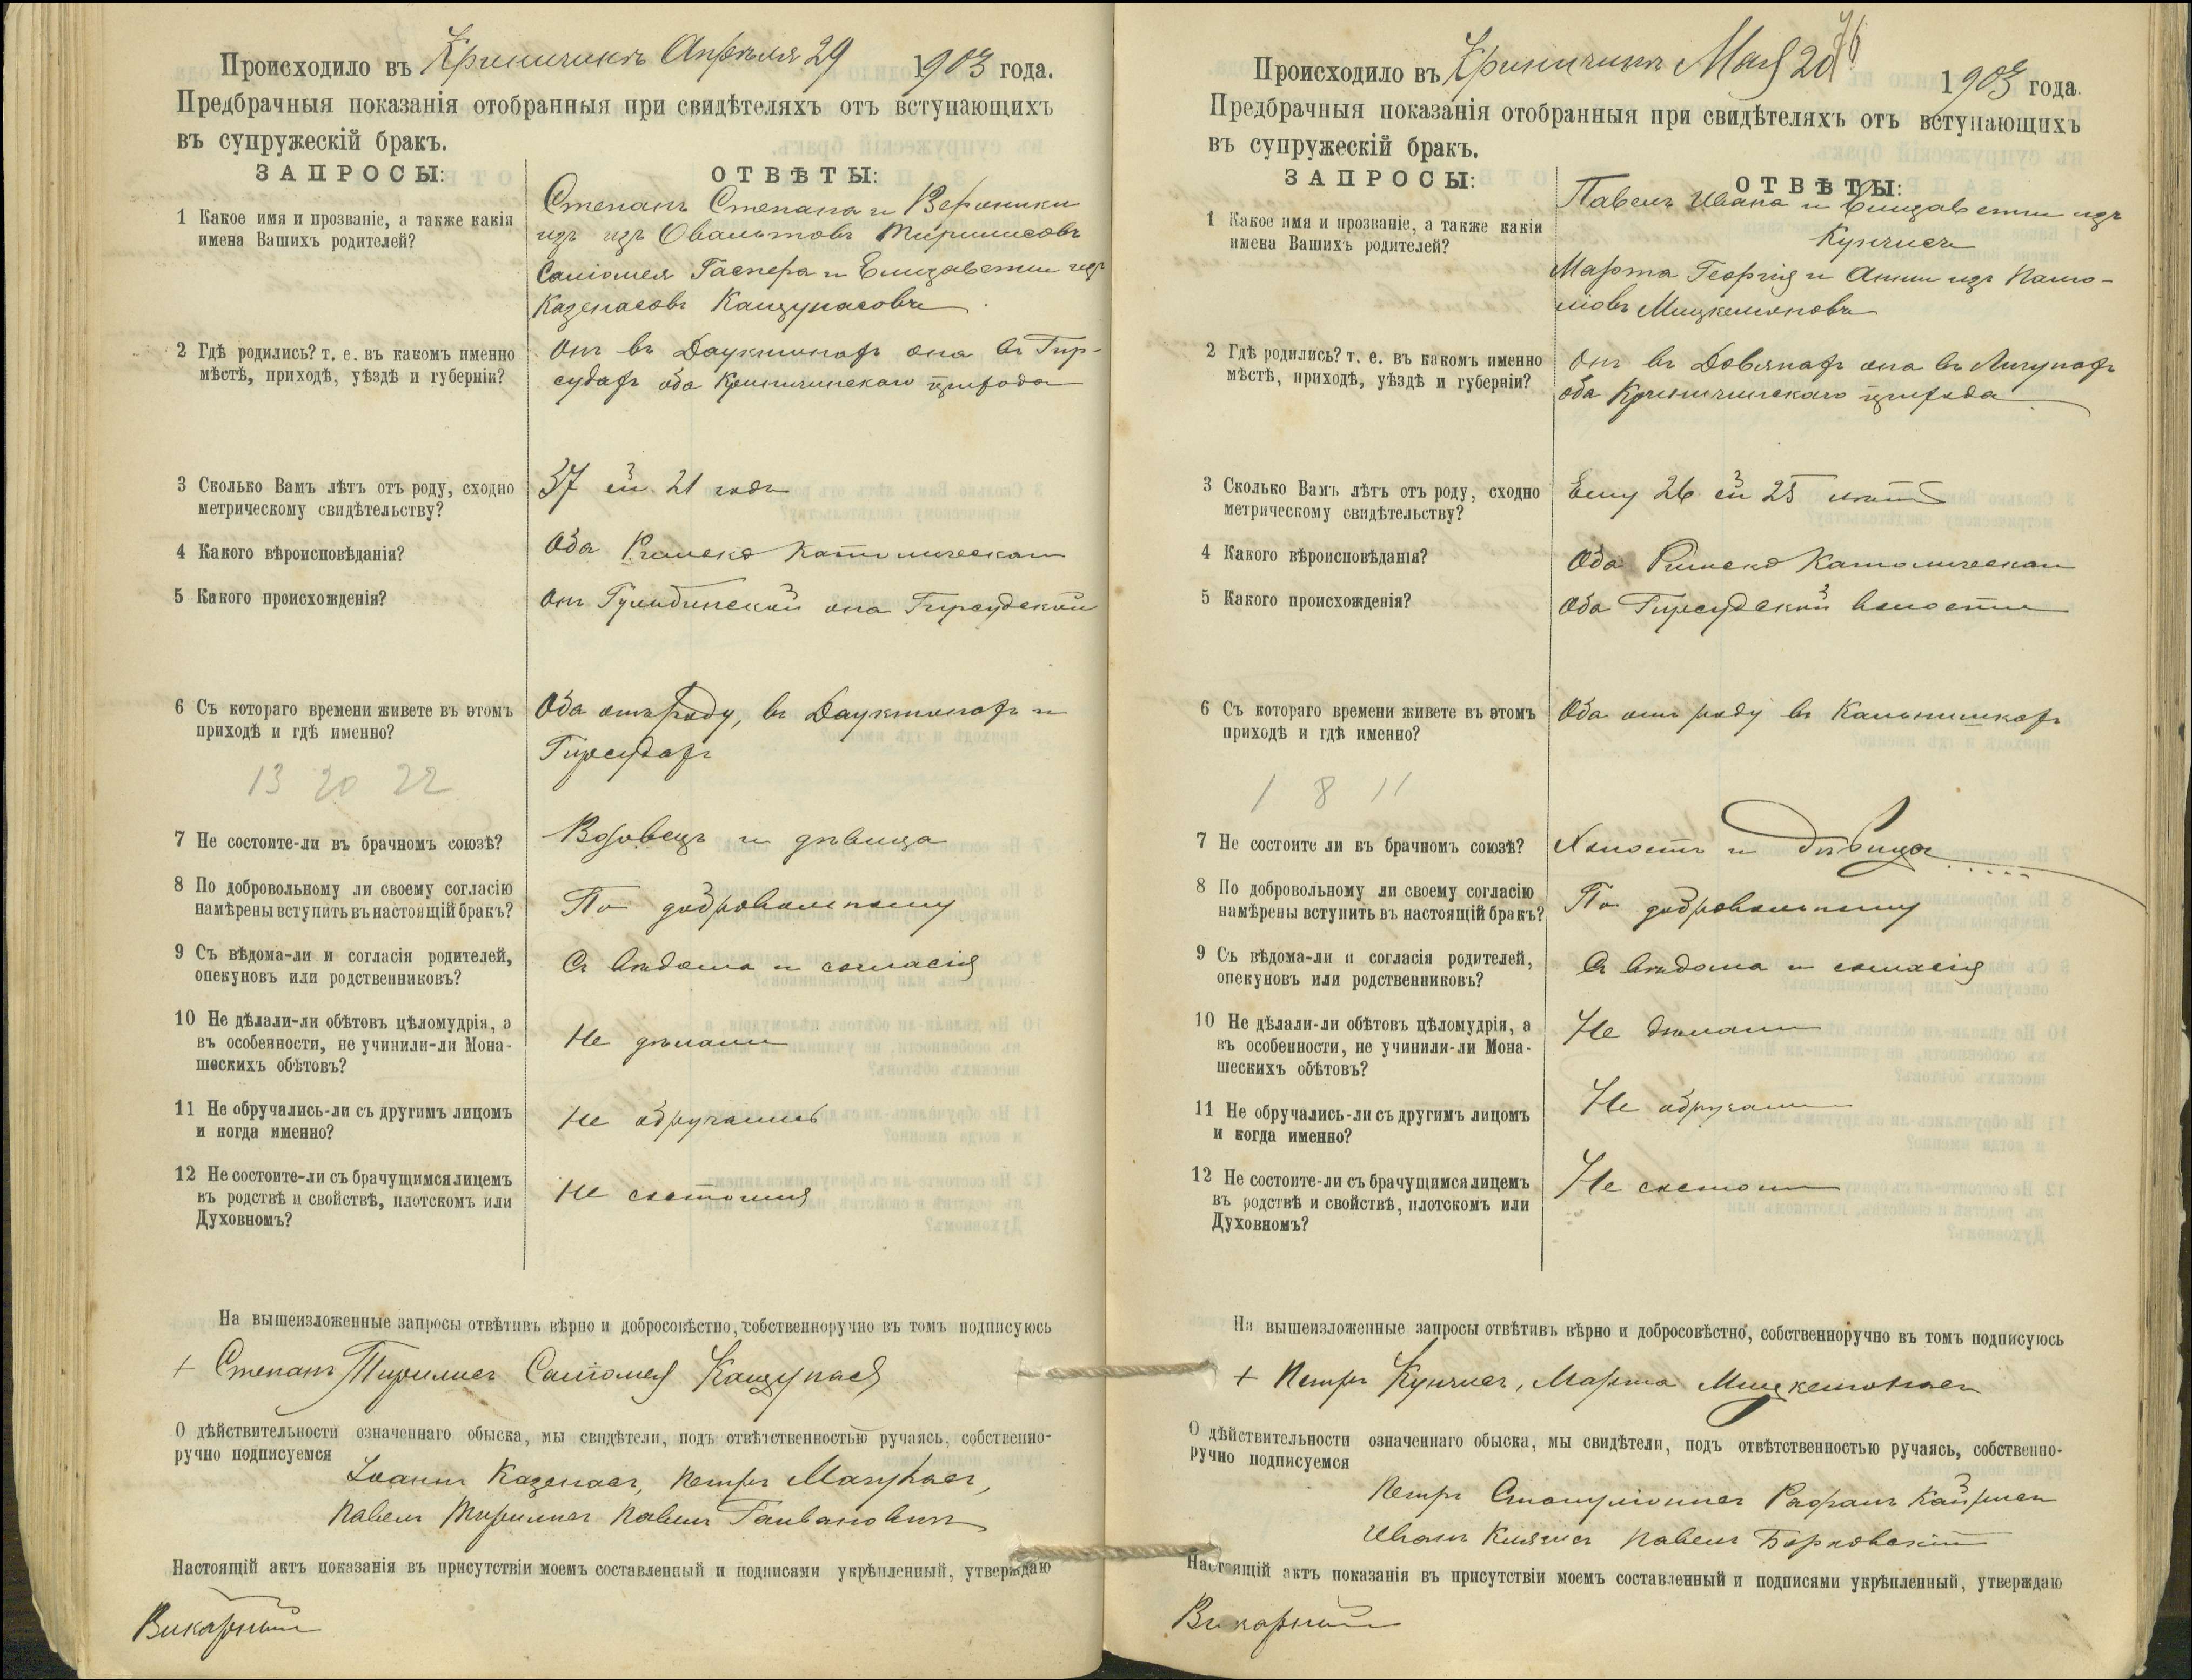 Происходило въ Криничинѣ Апрѣля 29 1903 года.
Предбрачныя показанія отобранныя при свидѣтеляхъ отъ вступающихъ
въ супружескій бракъ.
ЗАПРОСЫ: ОТВѢТЫ:
1 Какое имя и прозваніе, а также какія
имена Вашихъ родителей?
Степанъ Степана и Вероники
изъ изъ
Саломея Гаспера и Елизаветы изъ
2 Гдѣ родились? т. е. въ какомъ именно
мѣстѣ, приходѣ, уѣздѣ и губерніи?
Онъ въ она въ Гир-
судахъ оба Криничинскаго прихода
3 Сколько Вамъ лѣтъ отъ роду, сходно
метрическому свидѣтельству?
37 ей 21 годъ
4 Какого вѣроисповѣданія?
Оба Римско Католическаго
5 Какого происхожденія?
Онъ она Гирсудской
6 Съ котораго времени живете въ этомъ
приходѣ и гдѣ именно?
Оба отъ роду, въ и
Гирсудахъ
13 20 22
7 Не состоите-ли въ брачномъ союзѣ?
Вдовецъ и дѣвица
8 По добровольному ли своему согласію
намѣрены вступить въ настоящій бракъ?
По добровольному
9 Съ вѣдома-ли и согласія родителей,
опекуновъ или родственниковъ?
Съ вѣдома и согласія
10 Не дѣлали-ли обѣтовъ цѣломудрія, а
въ особенности, не учинили-ли Мона-
шескихъ обѣтовъ?
Не дѣлали
11 Не обручались-ли съ другимъ лицомъ
и когда именно?
Не обручались
12 Не состоите-ли съ брачущимся лицемъ
въ родствѣ и свойствѣ, плотскомъ или
Духовномъ?
Не состоимъ
На вышеизложенные запросы отвѣтивъ вѣрно и добросовѣстно, собственноручно въ томъ подписуюсь
+ Степанъ Саломея
О дѣйствительности означеннаго обыска, мы свидѣтели, подъ отвѣтственностью ручаясь, собственно-
ручно подписуемся
Іоаннъ Петръ
Павелъ Павелъ
Настоящій актъ показанія въ присутствіи моемъ составленный и подписями укрѣпленный, утверждаю
Викарный
76
Происходило въ Криничинѣ Мая 20 1903 года.
Предбрачныя показанія отобранныя при свидѣтеляхъ отъ вступающихъ
въ супружескій бракъ.
ЗАПРОСЫ: ОТВѢТЫ:
1 Какое имя и прозваніе, а также какія
имена Вашихъ родителей?
Павелъ Ивана и Елизаветы изъ
Марта Георгія и Анны изъ
2 Гдѣ родились? т. е. въ какомъ именно
мѣстѣ, приходѣ, уѣздѣ и губерніи?
Онъ въ она въ
оба Криничинскаго прихода
3 Сколько Вамъ лѣтъ отъ роду, сходно
метрическому свидѣтельству?
Ему 26 ей 25 лѣтъ
4 Какого вѣроисповѣданія?
Оба Римско Католическаго
5 Какого происхожденія?
Оба Гирсудской волости
6 Съ котораго времени живете въ этомъ
приходѣ и гдѣ именно?
Оба отъ роду въ
1 8 11
7 Не состоите ли въ брачномъ союзѣ?
Холостъ и дѣвица
8 По добровольному ли своему согласію
намѣрены вступить въ настоящій бракъ?
По добровольному
9 Съ вѣдома-ли и согласія родителей,
опекуновъ или родственниковъ?
Съ вѣдома и согласія
10 Не дѣлали-ли обѣтовъ цѣломудрія, а
въ особенности, не учинили-ли Мона-
шескихъ обѣтовъ?
Не дѣлали
11 Не обручались-ли съ другимъ лицомъ
и когда именно?
Не обручали
12 Не состоите-ли съ брачущимся лицемъ
въ родствѣ и свойствѣ, плотскомъ или
Духовномъ?
Не состоимъ
На вышеизложенные запросы отвѣтивъ вѣрно и добросовѣстно, собственноручно въ томъ подписуюсь
+ Петръ Марта
О дѣйствительности означеннаго обыска, мы свидѣтели, подъ отвѣтственностью ручаясь, собственно-
ручно подписуемся
Петръ
Иванъ Павелъ Борковскій
Настоящій актъ показанія въ присутствіи моемъ составленный и подписями укрѣпленный, утверждаю
Викарный